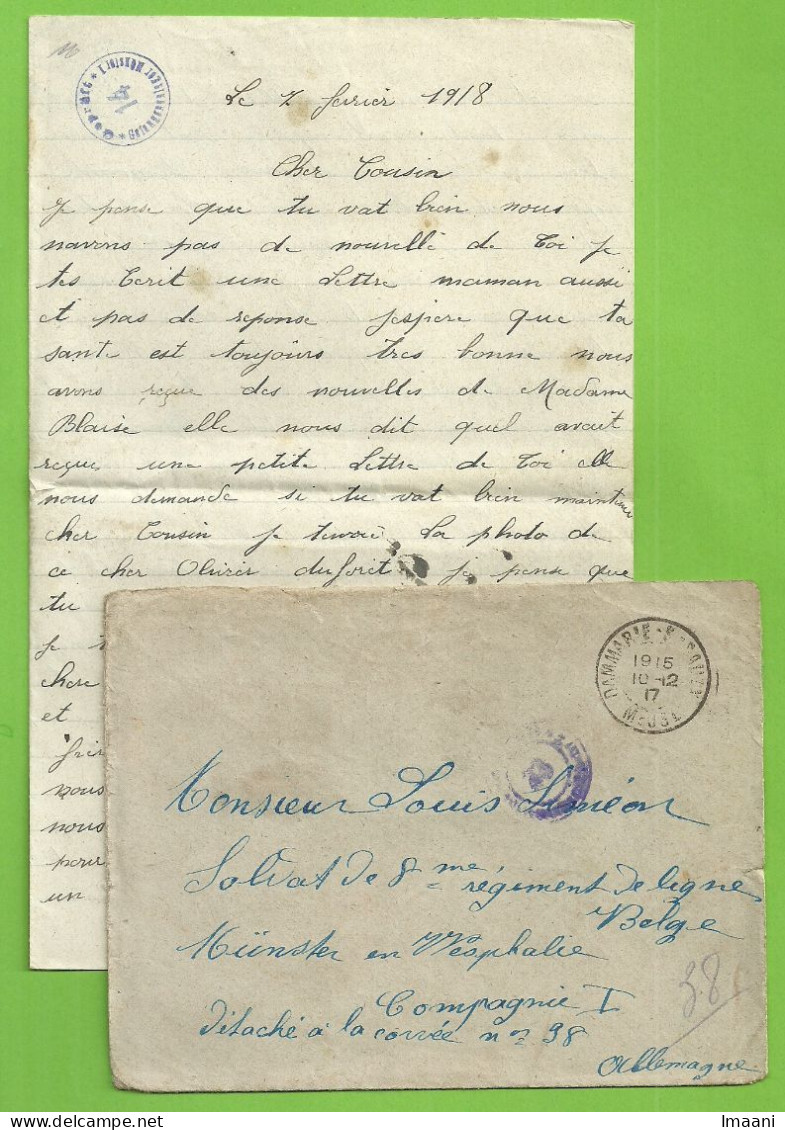 Le 7 fevrier 1918
Cher Cousin
Je pense que tu vat bien nous
navons pas de nouvelle de toi je
tes Ecrit une Lettre maman aussi
et pas de reponse jespere que ta
sante est toujours tres bonne nous
avons reçue des nouvelles de Madame
Blaise elle nous dit quel avait
reçue une petite Lettre de toi elle
nous demande si tu vat bien maintenu
cher Cousin je tenvoi La photo de
ce cher Olivier duforet je pense que
tu
je
chere
et
nous
nous
pour
un
1915
10-12
17
Monsieur Louis Siméon
Soldat de 8me régiment de ligne
Belge
Münster en Wesphalie
Compagnie I
Détaché à la corvée no 98
Allemagne
98
Imaani